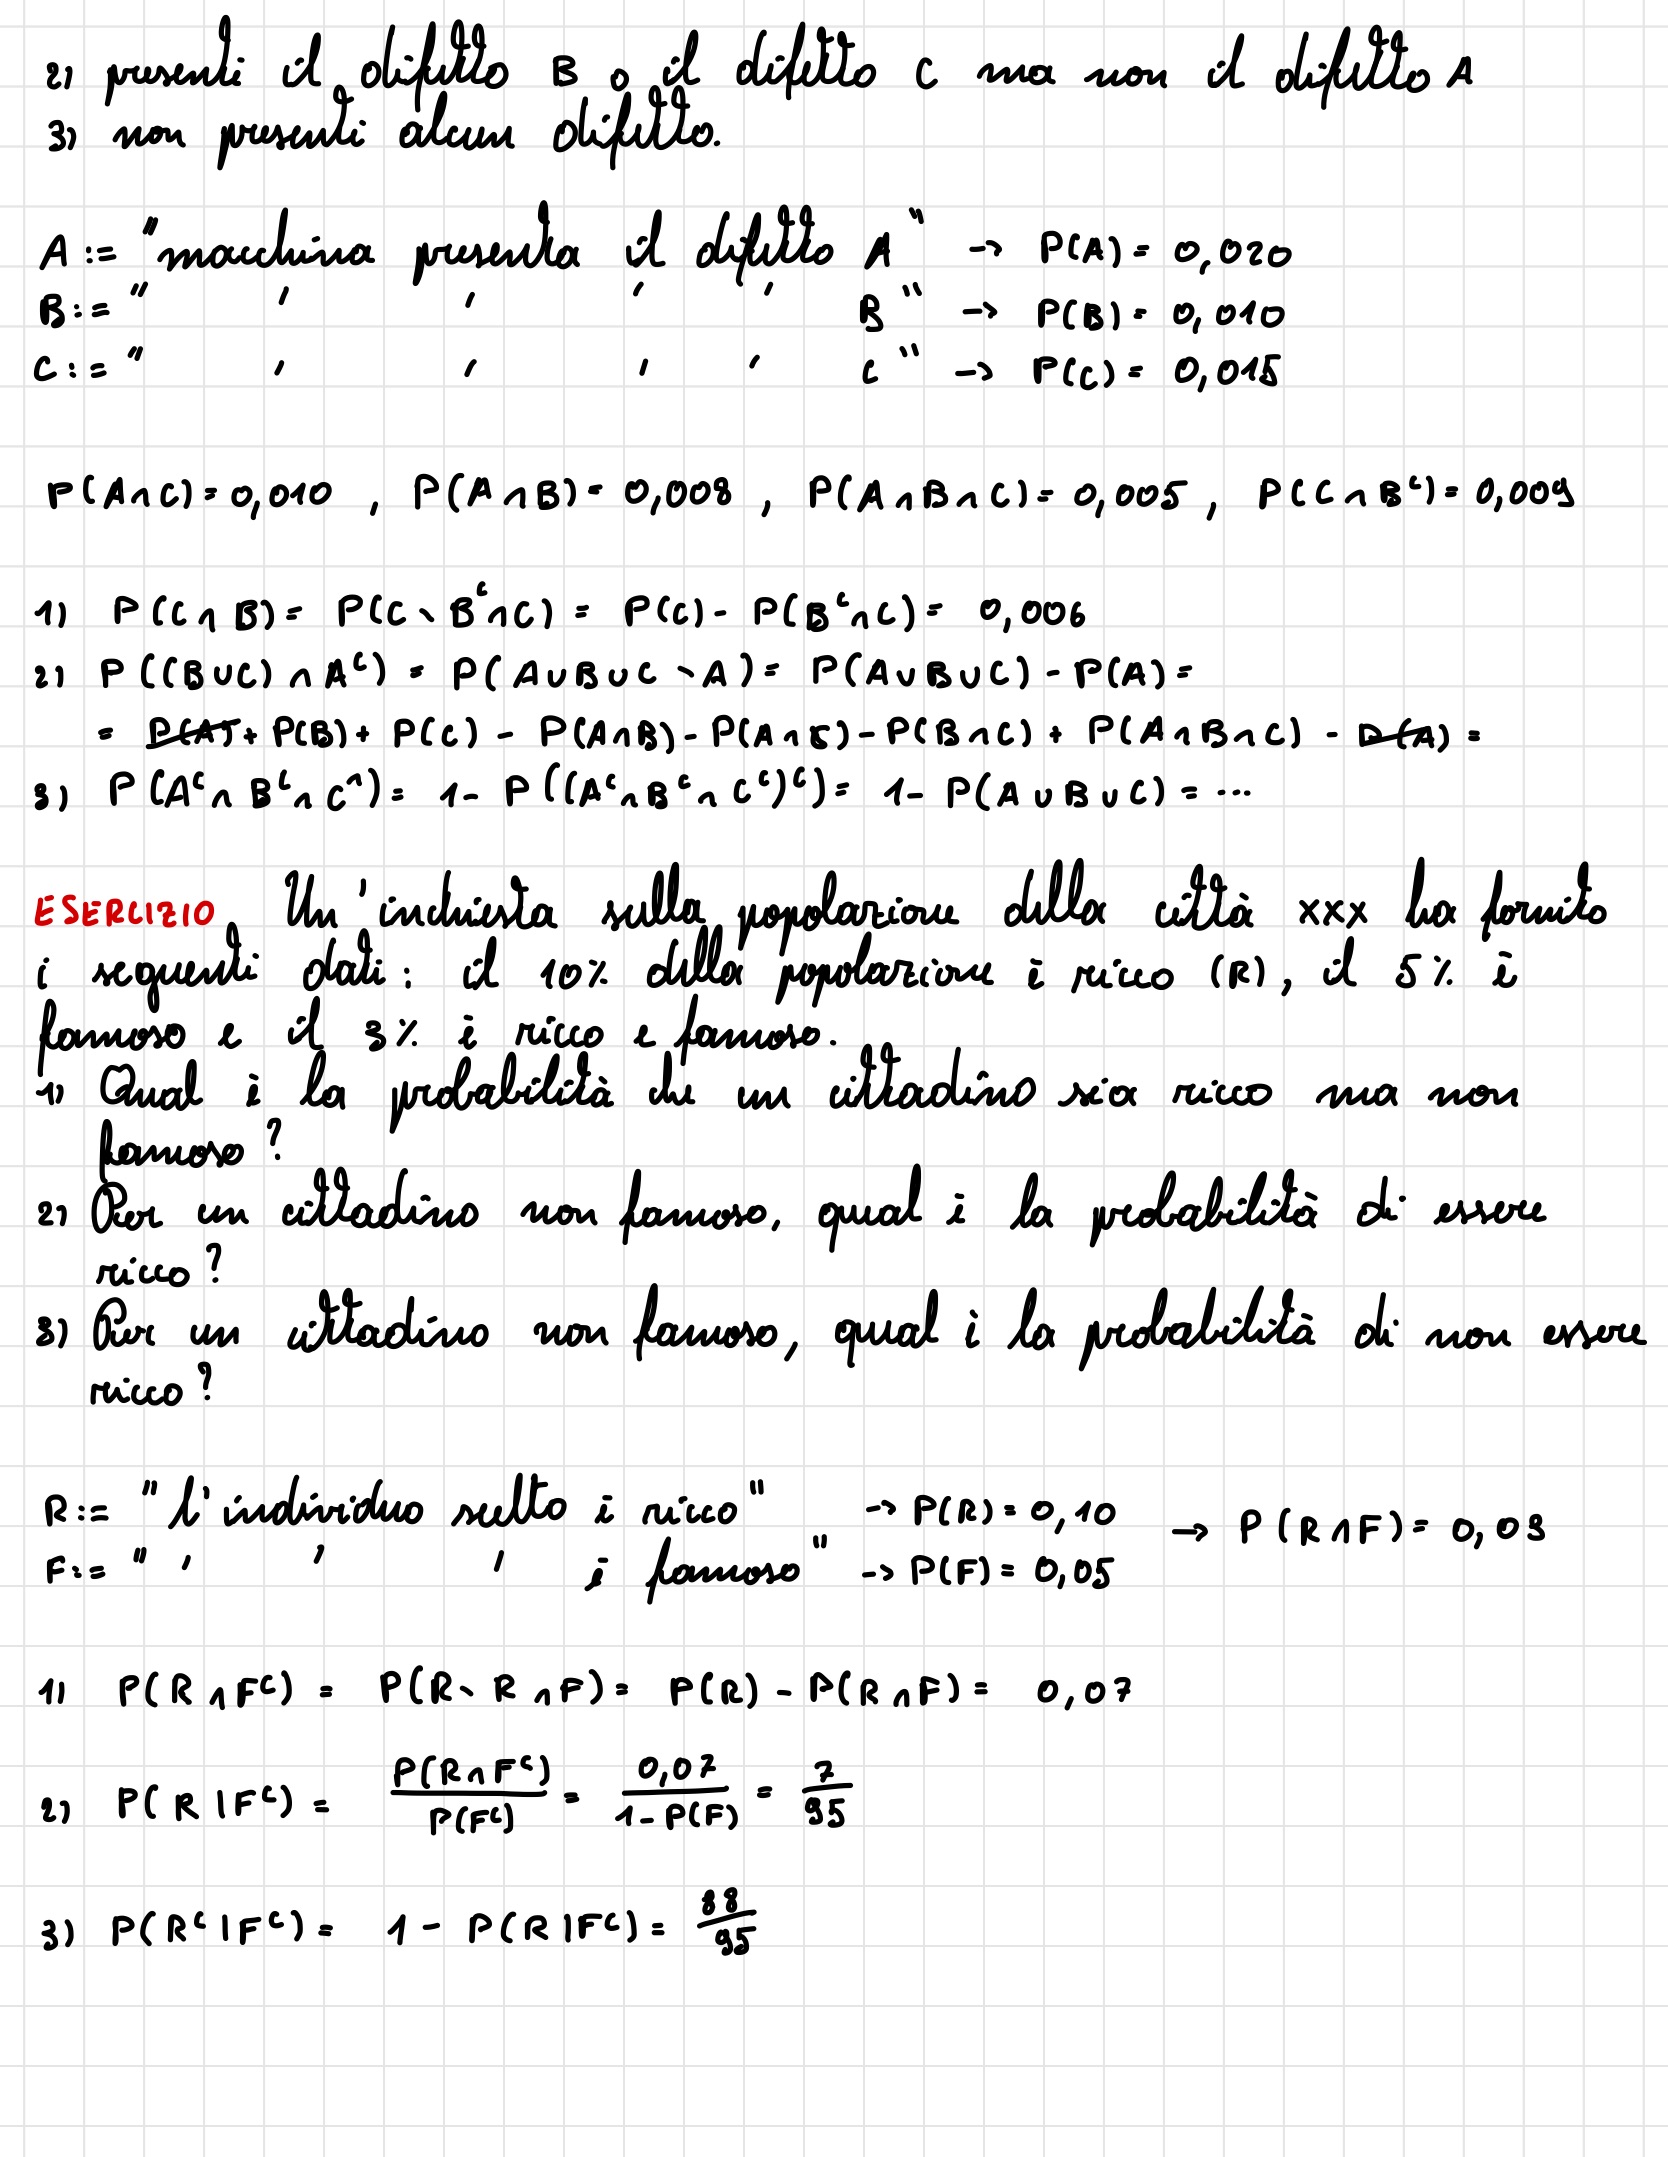 2) presenti il difetto B o il difetto C ma non il difetto A
3) non presenti alcun difetto.
A := "macchina presenta il difetto A" → P(A) = 0,020
B := " ' ' ' ' B" → P(B) = 0,010
C := " ' ' ' ' C" → P(C) = 0,015
P(A∩C) = 0,010 , P(A∩B) = 0,008 , P(A∩B∩C) = 0,005 , P(C∩Bᶜ) = 0,009
1) P(C∩B) = P(C∖Bᶜ∩C) = P(C) - P(Bᶜ∩C) = 0,006
2) P((B∪C)∩Aᶜ) = P(A∪B∪C∖A) = P(A∪B∪C) - P(A) =
= P(A) + P(B) + P(C) - P(A∩B) - P(A∩C) - P(B∩C) + P(A∩B∩C) - P(A) =
3) P(Aᶜ∩Bᶜ∩Cᶜ) = 1 - P((Aᶜ∩Bᶜ∩Cᶜ)ᶜ) = 1 - P(A∪B∪C) = ...
ESERCIZIO Un'inchiesta sulla popolazione della città xxx ha fornito
i seguenti dati: il 10% della popolazione è ricco (R), il 5% è
famoso e il 3% è ricco e famoso.
1) Qual è la probabilità che un cittadino sia ricco ma non
famoso?
2) Per un cittadino non famoso, qual è la probabilità di essere
ricco?
3) Per un cittadino non famoso, qual è la probabilità di non essere
ricco?
R := "l'individuo scelto è ricco" → P(R) = 0,10 → P(R∩F) = 0,03
F := " ' ' ' è famoso" → P(F) = 0,05
1) P(R∩Fᶜ) = P(R∖R∩F) = P(R) - P(R∩F) = 0,07
2) P(R|Fᶜ) = P(R∩Fᶜ)/P(Fᶜ) = 0,07/1-P(F) = 7/95
3) P(Rᶜ|Fᶜ) = 1 - P(R|Fᶜ) = 88/95